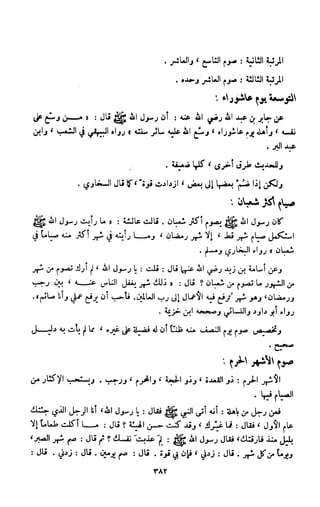 المرتبة الثانية : صوم التاسع ، والعاشر .
المرتبة الثالثة : صوم العاشر وحده .
التوسعة يوم عاشوراء :
عن جابر بن عبد الله رضي الله عنه : أن رسول الله ﷺ قال : « من وسع على
نفسه ، وأهله يوم عاشوراء ، وسع الله عليه سائر سنته » رواه البيهقي في الشعب ، وابن
عبد البر .
وللحديث طرق أخرى ، كلها ضعيفة .
ولكن إذا ضم بعضها إلى بعض ، ازدادت قوة ، كما قال السخاوي .
صيام أكثر شعبان :
كان رسول الله ﷺ يصوم أكثر شعبان . قالت عائشة : « ما رأيت رسول الله ﷺ
استكمل صيام شهر قط ، إلا شهر رمضان ، وما رأيته في شهر أكثر منه صياماً في
شعبان » رواه البخاري ومسلم .
وعن أسامة بن زيد رضي الله عنهما قال : قلت : يا رسول الله ، لم أرك تصوم من شهر
من الشهور ما تصوم من شعبان ؟ قال : « ذلك شهر يغفل الناس عنه ، بين رجب
ورمضان ، وهو شهر ترفع فيه الأعمال إلى رب العالمين، فأحب أن يرفع عملي وأنا صائم» .
رواه أبو داود والنسائي وصححه ابن خزيمة .
وتخصيص صوم يوم النصف منه ظناً أن له فضيلة على غيره ، مما لم يأت به دليل
صحيح .
صوم الأشهر الحرم :
الأشهر الحرم : ذو القعدة ، وذو الحجة ، والمحرم ، ورجب . ويستحب الإكثار من
الصيام فيها .
فعن رجل من باهلة : أنه أتى النبي ﷺ فقال : يا رسول الله ، أنا الرجل الذي جئتك
عام الأول ، فقال : فما غيرك ، وقد كنت حسن الهيئة ؟ قال : ما أكلت طعاماً إلا
بليل منذ فارقتك ، فقال رسول الله ﷺ : لم عذبت نفسك ؟ ثم قال : صم شهر الصبر ،
ويوماً من كل شهر . قال : زدني ، فإن بي قوة . قال : صم يومين . قال : زدني . قال :
٣٨٢